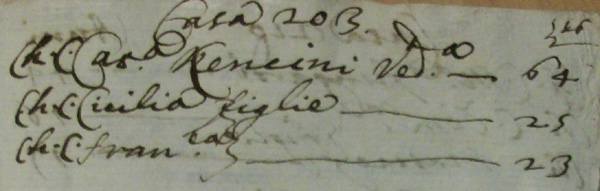 Casa 203.
Ch. C. Cas.a Kencini Ved.a 64
Ch. C. Cicilia figlie 25
Ch. C. fran.ca 23